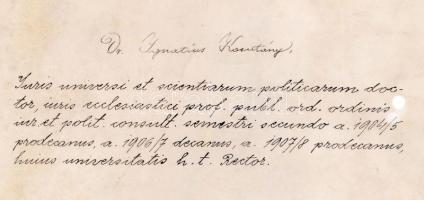 Dr. Ignatius Kosutány,
Iuris universi et scientiarum politicarum doc-
tor, iuris ecclesiastici prof. publ. ord. ordinis
iur. et polit. consult. semestri secundo a. 1904/5
prodecanus, a. 1906/7 decanus, a. 1907/8 prodecanus,
huius universitatis h. t. Rector.